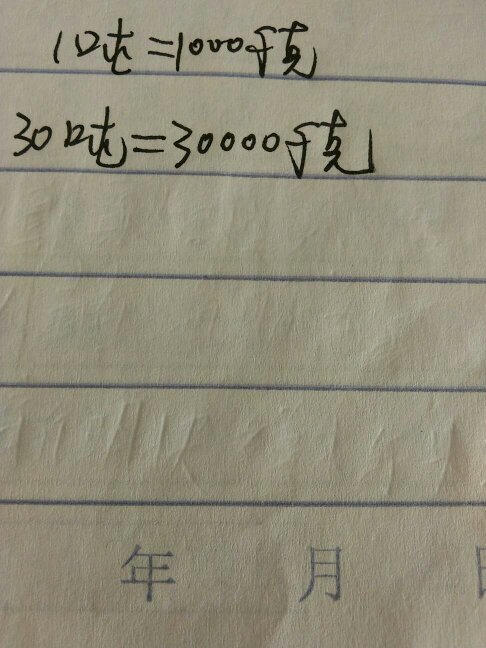 1吨=1000千克
30吨=30000千克
年 月